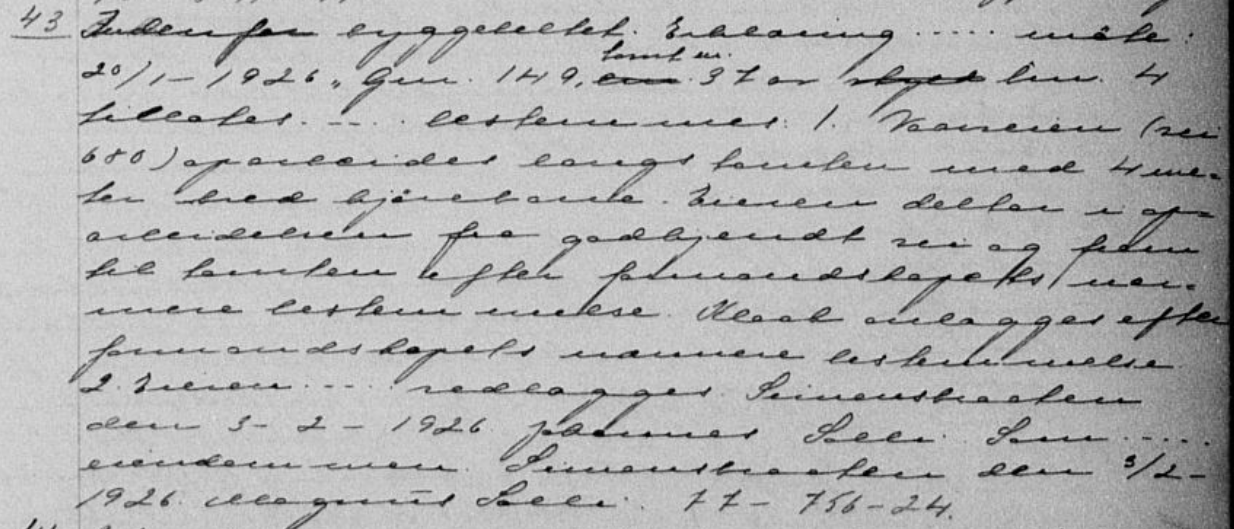 43 Indenfor byggebeltet. Erklæring ..... møte:
20/1-1926 „Gnr. 149, tomt nr. 37 av bnr. 4
tillates .... bestemmes: 1. Veien (vei
680) oparbeides langs tomten med 4 me-
ter bred kjørebane. Eieren deltar i op-
arbeidelsen fra godkjendt vei og frem
til tomten efter formandskapets nær-
mere bestemmelse. Kloak anlægges efter
formandskapets nærmere bestemmelse
2. Eieren .... vedlægges. Simensbraaten
den 3-2-1926 Johannes Solli. Som .....
eiendommen. Simensbraaten den 3/2-
1926. Magnus Solli. 77-756-24.